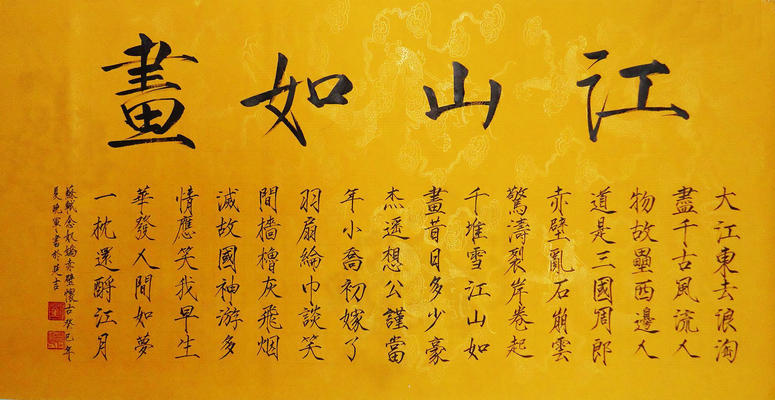 江山如畫
大江東去浪淘
盡千古風流人
物故壘西邊人
道是三國周郎
赤壁亂石崩雲
驚濤裂岸卷起
千堆雪江山如
畫昔日多少豪
杰遥想公謹當
年小喬初嫁了
羽扇綸巾談笑
間檣櫓灰飛烟
滅故國神游多
情應笑我早生
華發人間如夢
一枕還酹江月
蘇軾念奴嬌赤壁懷古癸巳年
夏晚軍書於延吉